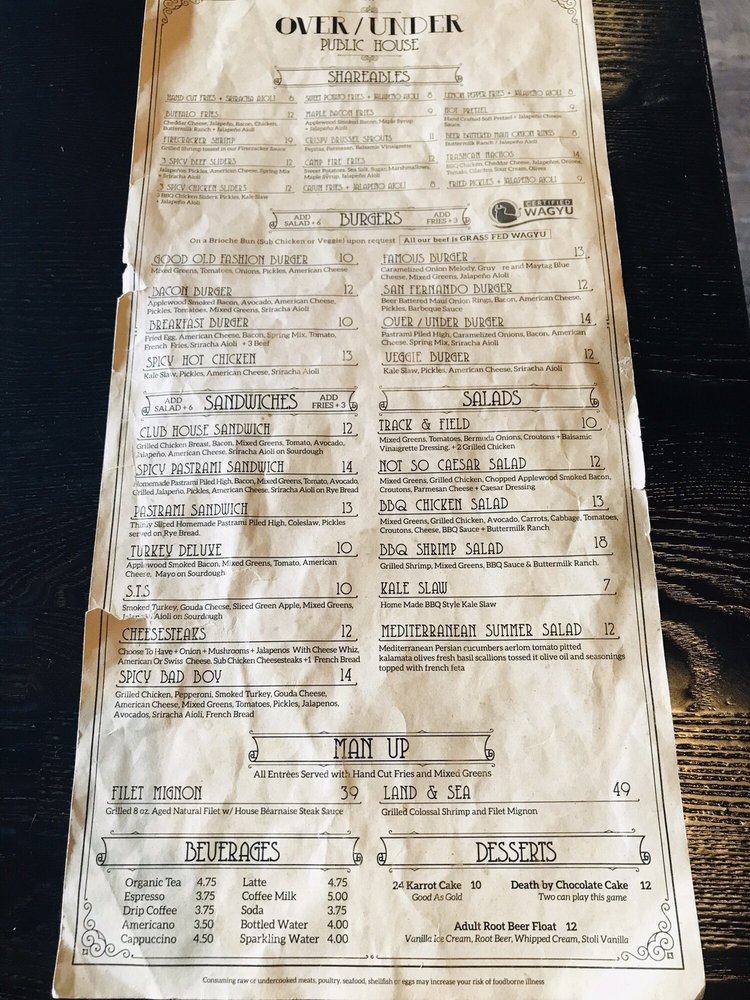 OVER / UNDER
PUBLIC HOUSE
SHAREABLES
HAND CUT FRIES + SRIRACHA AIOLI 8
BUFFALO FRIES 12
Cheddar Cheese, Jalapeño, Bacon, Chicken,
Buttermilk Ranch + Jalapeño Aioli
FIRECRACKER SHRIMP 19
Grilled Shrimp tossed in our Firecracker Sauce
3 SPICY BEEF SLIDERS 12
Jalapeños, Pickles, American Cheese, Spring Mix
+ Sriracha Aioli
3 SPICY CHICKEN SLIDERS 12
3 BBQ Chicken Sliders, Pickles, Kale Slaw
+ Jalapeño Aioli
SWEET POTATO FRIES + JALAPEÑO AIOLI 8
MAPLE BACON FRIES 9
Applewood Smoked Bacon, Maple Syrup
+ Jalapeño Aioli
CRISPY BRUSSEL SPROUTS 11
Pepitas, Parmesan, Balsamic Vinaigrette
CAMP FIRE FRIES 12
Sweet Potatoes, Sea Salt, Sugar, Marshmallows,
Maple Syrup, Jalapeño Aioli
CAJUN FRIES + JALAPEÑO AIOLI 8
LEMON PEPPER FRIES + JALAPEÑO AIOLI 8
HOT PRETZEL 9
Hand Crafted Soft Pretzel + Jalapeño Cheese
Sauce.
BEER BATTERED MAUI ONION RINGS 8
Buttermilk Ranch / Jalapeño Aioli
TRASHCAN NACHOS 14
BBQ Chicken, Cheddar Cheese, Jalapeños, Onions,
Tomato, Cilantro, Sour Cream, Olives
FRIED PICKLES + JALAPEÑO AIOLI 9
ADD
SALAD + 6
BURGERS
ADD
FRIES + 3
CERTIFIED
WAGYU
On a Brioche Bun (Sub Chicken or Veggie) upon request All our beef is GRASS FED WAGYU
GOOD OLD FASHION BURGER 10
Mixed Greens, Tomatoes, Onions, Pickles, American Cheese
BACON BURGER 12
Applewood Smoked Bacon, Avocado, American Cheese,
Pickles, Tomatoes, Mixed Greens, Sriracha Aioli
BREAKFAST BURGER 10
Fried Egg, American Cheese, Bacon, Spring Mix, Tomato,
French Fries, Sriracha Aioli + 3 Beef
SPICY HOT CHICKEN 13
Kale Slaw, Pickles, American Cheese, Sriracha Aioli
FAMOUS BURGER 13
Caramelized Onion Melody, Gruy re and Maytag Blue
Cheese, Mixed Greens, Jalapeño Aioli
SAN FERNANDO BURGER 12
Beer Battered Maui Onion Rings, Bacon, American Cheese,
Pickles, Barbeque Sauce
OVER / UNDER BURGER 14
Pastrami Piled High, Caramelized Onions, Bacon, American
Cheese, Spring Mix, Sriracha Aioli
VEGGIE BURGER 12
Kale Slaw, Pickles, American Cheese, Sriracha Aioli
ADD
SALAD + 6
SANDWICHES
ADD
FRIES + 3
CLUB HOUSE SANDWICH 12
Grilled Chicken Breast, Bacon, Mixed Greens, Tomato, Avocado,
Jalapeño, American Cheese, Sriracha Aioli on Sourdough
SPICY PASTRAMI SANDWICH 14
Homemade Pastrami Piled High, Bacon, Mixed Greens, Tomato, Avocado,
Grilled Jalapeño, Pickles, American Cheese, Sriracha Aioli on Rye Bread
PASTRAMI SANDWICH 13
Thinly Sliced Homemade Pastrami Piled High, Coleslaw, Pickles
served on Rye Bread.
TURKEY DELUXE 10
Applewood Smoked Bacon, Mixed Greens, Tomato, American
Cheese, Mayo on Sourdough
S.T.S 10
Smoked Turkey, Gouda Cheese, Sliced Green Apple, Mixed Greens,
Jalapeño Aioli on Sourdough
CHEESESTEAKS 12
Choose To Have + Onion + Mushrooms + Jalapenos With Cheese Whiz,
American Or Swiss Cheese. Sub Chicken Cheesesteaks +1 French Bread
SPICY BAD BOY 14
Grilled Chicken, Pepperoni, Smoked Turkey, Gouda Cheese,
American Cheese, Mixed Greens, Tomatoes, Pickles, Jalapenos,
Avocados, Sriracha Aioli, French Bread
SALADS
TRACK & FIELD 10
Mixed Greens, Tomatoes, Bermuda Onions, Croutons + Balsamic
Vinaigrette Dressing. +2 Grilled Chicken
NOT SO CAESAR SALAD 12
Mixed Greens, Grilled Chicken, Chopped Applewood Smoked Bacon,
Croutons, Parmesan Cheese + Caesar Dressing
BBQ CHICKEN SALAD 13
Mixed Greens, Grilled Chicken, Avocado, Carrots, Cabbage, Tomatoes,
Croutons, Cheese, BBQ Sauce + Buttermilk Ranch
BBQ SHRIMP SALAD 18
Grilled Shrimp, Mixed Greens, BBQ Sauce & Buttermilk Ranch.
KALE SLAW 7
Home Made BBQ Style Kale Slaw
MEDITERRANEAN SUMMER SALAD 12
Mediterranean Persian cucumbers aerlom tomato pitted
kalamata olives fresh basil scallions tossed it olive oil and seasonings
topped with french feta
MAN UP
All Entrées Served with Hand Cut Fries and Mixed Greens
FILET MIGNON 39
Grilled 8 oz. Aged Natural Filet w/ House Béarnaise Steak Sauce
LAND & SEA 49
Grilled Colossal Shrimp and Filet Mignon
BEVERAGES
Organic Tea 4.75 Latte 4.75
Espresso 3.75 Coffee Milk 5.00
Drip Coffee 3.75 Soda 3.75
Americano 3.50 Bottled Water 4.00
Cappuccino 4.50 Sparkling Water 4.00
DESSERTS
24 Karrot Cake 10 Death by Chocolate Cake 12
Good As Gold Two can play this game
Adult Root Beer Float 12
Vanilla Ice Cream, Root Beer, Whipped Cream, Stoli Vanilla
Consuming raw or undercooked meats, poultry, seafood, shellfish or eggs may increase your risk of foodborne illness